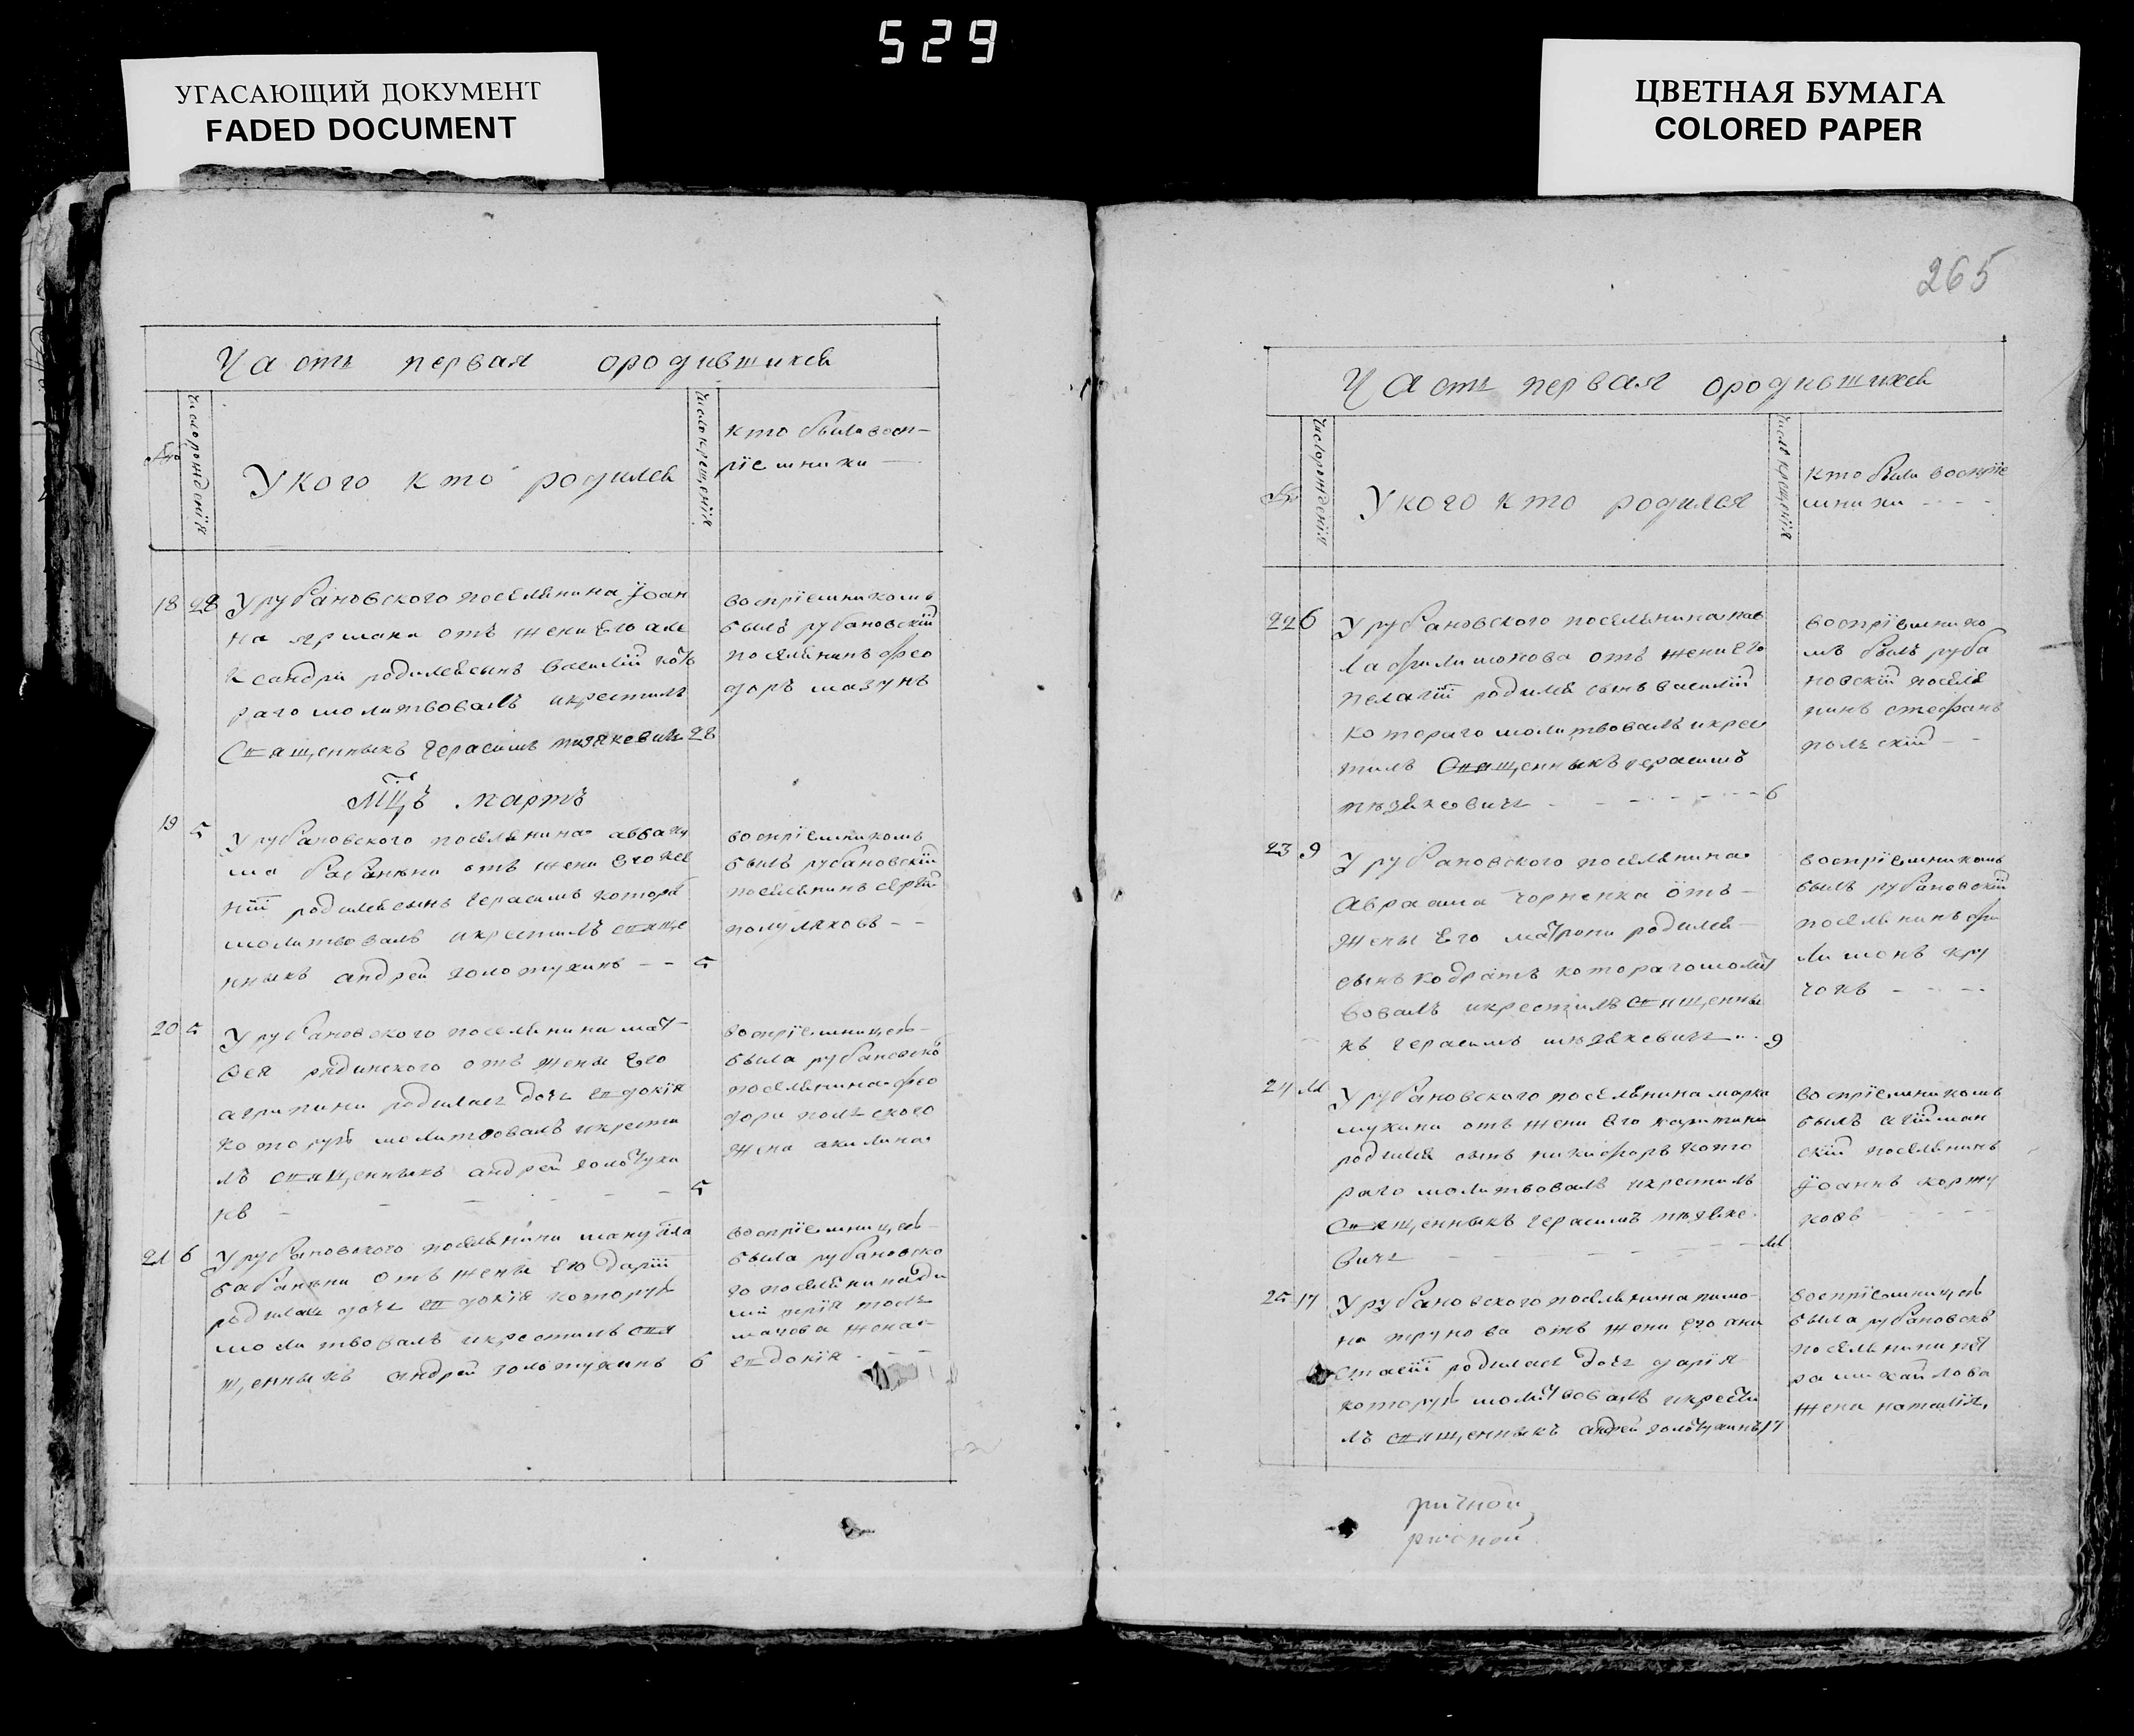 529
УГАСАЮЩИЙ ДОКУМЕНТ
FADED DOCUMENT
ЦВЕТНАЯ БУМАГА
COLORED PAPER
Часть первая ородившихся
№
число рожденія
У кого кто родился
число крещенія
кто были восп-
ріемники
18 28 У рубановского поселянина Іоан
на ярмака отъ жени Его але
ксандри родился сынъ василій кото
раго молитвовалъ икрестилъ
Священникъ герасимъ 28
воспріемникомъ
былъ рубановскій
поселянинъ фео
доръ мазунъ
Мцъ мартъ
19 5 У рубановского поселянина авваку
ма бабанѣни отъ жени Его ксе
ніи родился сынъ герасимъ котора
молитвовалъ икрестилъ священ
нникъ андрей голотукинъ - - 5
воспріемникомъ
былъ рубановскій
поселянинъ сергій
полуляховъ - -
20 5 У рубановского поселянина мат-
фея рядинского отъ жены Его
агрипини родилась дочь евдокія
которую молитвовалъ икрести
лъ священникъ андрей голотухи
нъ - - - - - 5
воспріемницею-
была рубановско
поселянина фео
дора полского
жена акилина
21 6 У рубановского поселянина мануила
бабанѣни отъ жены Его дарїи
родилась дочь евдокія которую
молитвовалъ икрестилъ свя
щенникъ андрей голотукинъ 6
воспріемницею-
была рубановско
го поселянина ди
митрія толъ
мачова жена-
евдокія - - -
265
Часть первая ородившихся
№
число рожденія
У кого кто родился
число крещенія
кто были воспріе
мники - - -
22 6 У рубановского поселянина пав
ла филимонова отъ жени Его
пелагіи родился сынъ василій
котораго молитвовалъ икрес
тилъ Священникъ герасимъ
- - - - - 6
воспріемнико
мъ былъ руба
новскій поселя
нинъ стефанъ
полскій - -
23 9 У рубановского поселянина
Авраама чорненка отъ-
жены Его матрони родился-
сынъ кодратъ котораго молит
вовалъ икрестилъ священни
къ герасимъ 9
воспріемникомъ
былъ рубановскій
поселянинъ фи
лимонъ кру
чокъ - - - -
24 11 У рубановского поселянина марка
мухина отъ жени Его харитини
родился сынъ никифоръ кото
раго молитвовалъ икрестилъ
Священникъ герасимъ
- - - - - 11
воспріемникомъ
былъ агайман
скій поселянинъ
Іоаннъ корту
ковъ
25 17 У рубановского поселянина тимо-
на трунова отъ жени Его ана
стасіи родилась дочь дарія
которую молитвовалъ икрести
лъ священникъ андрей голотукинъ 17
воспріемницею
была рубановскѣ
поселянина пет
ра михайлова
жена наталія.
ричной,
ричной